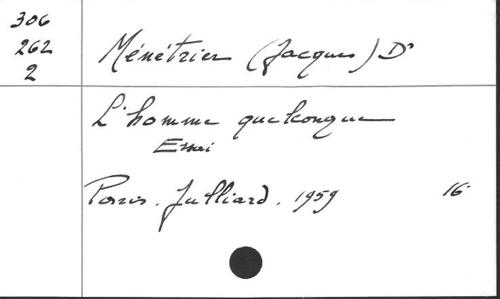 306
262
2
Ménétrier (Jacques) Dr
L'homme quelconque
Essai
Paris. Julliard. 1959 16°